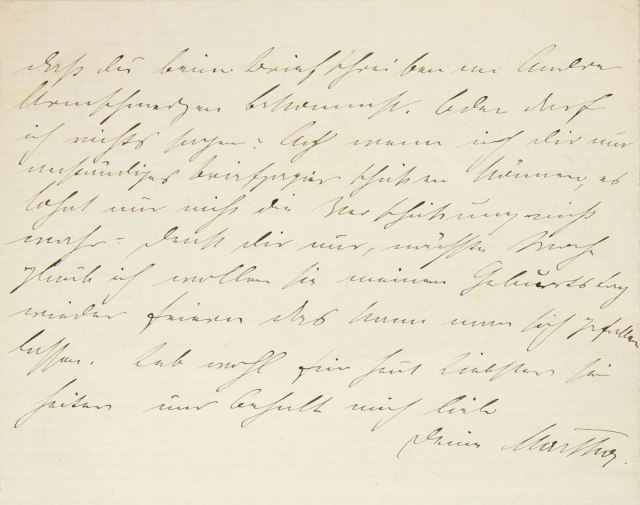 daß du beim Briefschreiben an Andre
Armschmerzen bekommst. Oder darf
ich nichts sagen? Ach wenn ich dir nur
anständiges Briefpapier schicken könnte, es
lohnt nur nicht die Verschickung nicht
wahr? Denk dir nur, nächste Woche
glaub ich wollen sie meinen Geburtstag
wieder feiern das kann man sich gefallen
lassen. Leb wohl für heut Liebster sei
heiter und behalt mich lieb
Deine Martha.